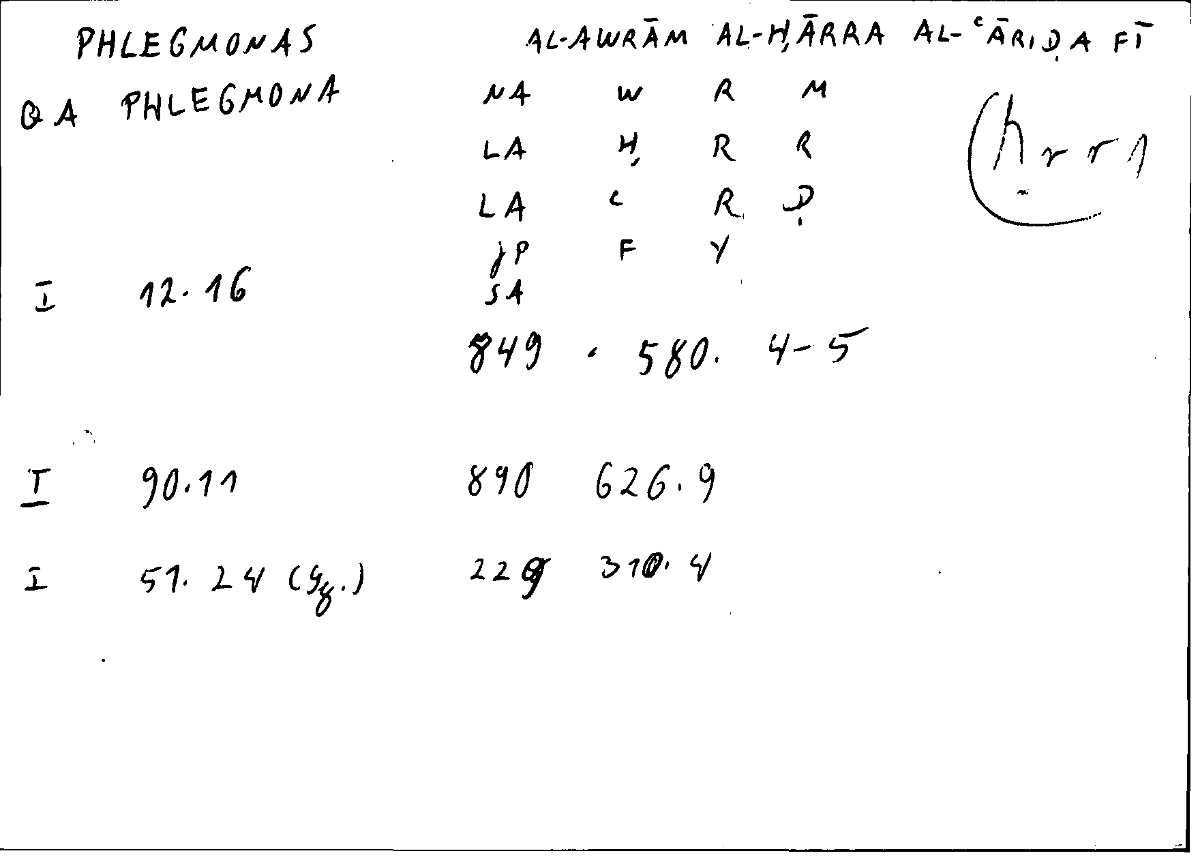 PHLEGMONAS AL-AWRĀM AL-ḤĀRRA AL-ʿĀRIḌA FĪ
QA PHLEGMONA NA W R M
LA Ḥ R R ḥrr1
LA ʿ R Ḍ
JP F Y
I 12.16 SA
849 . 580. 4-5
I 90.11 890 626.9
I 51.24 229 310.4